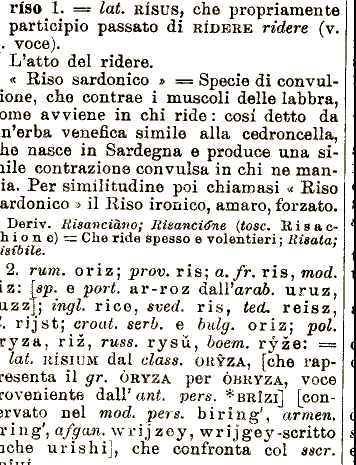 ríso 1. = lat. RÍSUS, che propriamente
participio passato di RÍDERE ridere (v.
. voce).
L'atto del ridere.
« Riso sardonico » = Specie di convul-
ione, che contrae i muscoli delle labbra,
ome avviene in chi ride: cosí detto da
n'erba venefica simile alla cedroncella,
he nasce in Sardegna e produce una si-
mile contrazione convulsa in chi ne man-
ia. Per similitudine poi chiamasi « Riso
ardonico » il Riso ironico, amaro, forzato.
Deriv. Risanciàno; Risancióne (tosc. Risac-
hione) = Che ride spesso e volentieri; Risata;
isíbile.
2. rum. oriz; prov. ris; a. fr. ris, mod.
iz: [sp. e port. ar-roz dall'arab. uruz,
uzz]; ingl. rice, sved. ris, ted. reisz,
. rijst; croat. serb. e bulg. oriz; pol.
ryza, riż, russ. rysŭ, boem. rýže: =
lat. RÍSIUM dal class. ORȲZA, [che rap-
resenta il gr. ÒRYZA per ÒBRYZA, voce
roveniente dall'ant. pers. *BRÍZI] [con-
ervato nel mod. pers. biring', armen.
ring', afgan. wrijzey, wrijgey-scritto
nche urishi], che confronta col sscr.